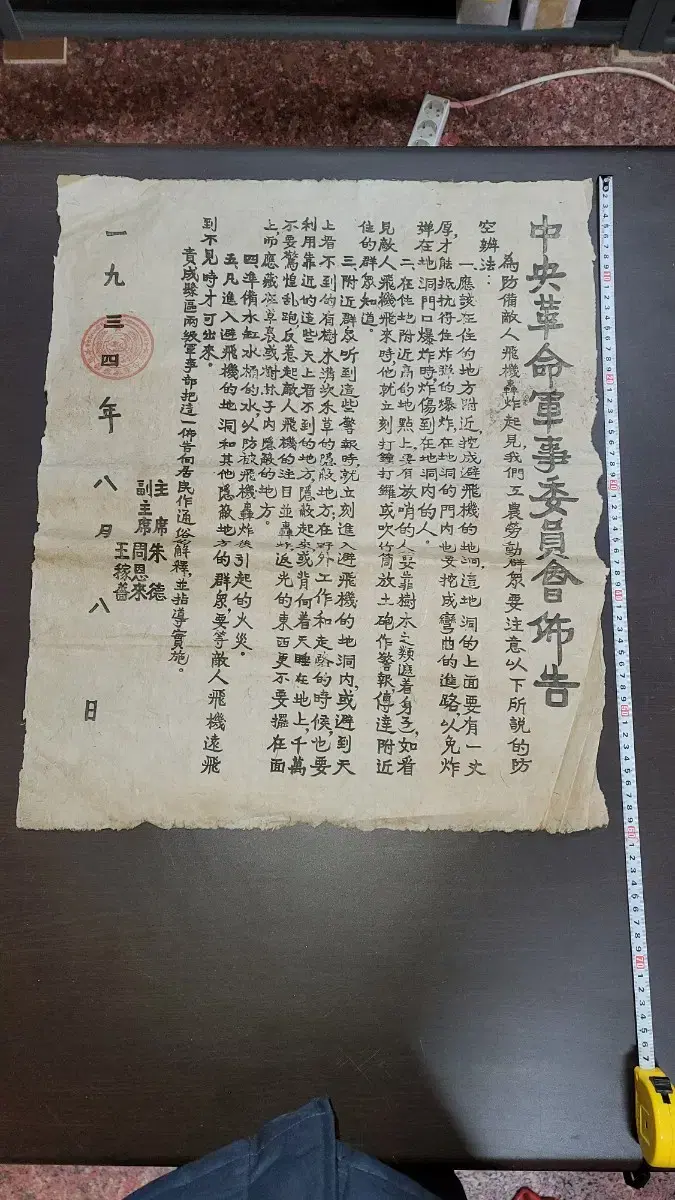 中央革命軍事委員會佈告
為防備敵人飛機轟炸起見,我們工農勞動群眾要注意以下所說的防
空辦法:
一、應該在住的地方附近,挖成避飛機的地洞,這地洞的上面要有一丈
厚,才能抵抗得住炸彈的爆炸,在地洞的門內也要挖成彎曲的進路以免炸
彈在地洞門口爆炸時炸傷到在地洞內的人。
二、在住地附近高的地點上,要有放哨的人要靠樹木之類遮着身子,如看
見敵人飛機飛來時他就立刻打鐘打鑼或吹竹筒放土砲作警報傳達附近
住的群眾知道。
三、附近群眾听到這些警報時,就立刻進入避飛機的地洞內,或避到天
上看不到的有樹木溝坎禾草的隱蔽地方,在野外工作和走路的時候,也要
利用靠近的這些天上看不到的地方隱蔽起來或背向着天睡在地上,千萬
不要驚惶乱跑反惹起敵人飛機的注目並轟炸,返光的東西更不要擺在面
上,而應藏在草裏或樹林子內隱蔽的地方。
四、準備水缸水桶的水,以防放飛機轟炸後引起的火災。
五、凡進入避飛機的地洞和其他隱蔽地方的群眾,要等敵人飛機遠飛
到不見時才可出來。
責成縣區兩級軍事部把這一佈告向居民作通俗解釋,並指導實施。
主席 朱德
副主席 周恩來
王稼薔
一九三四年八月八日